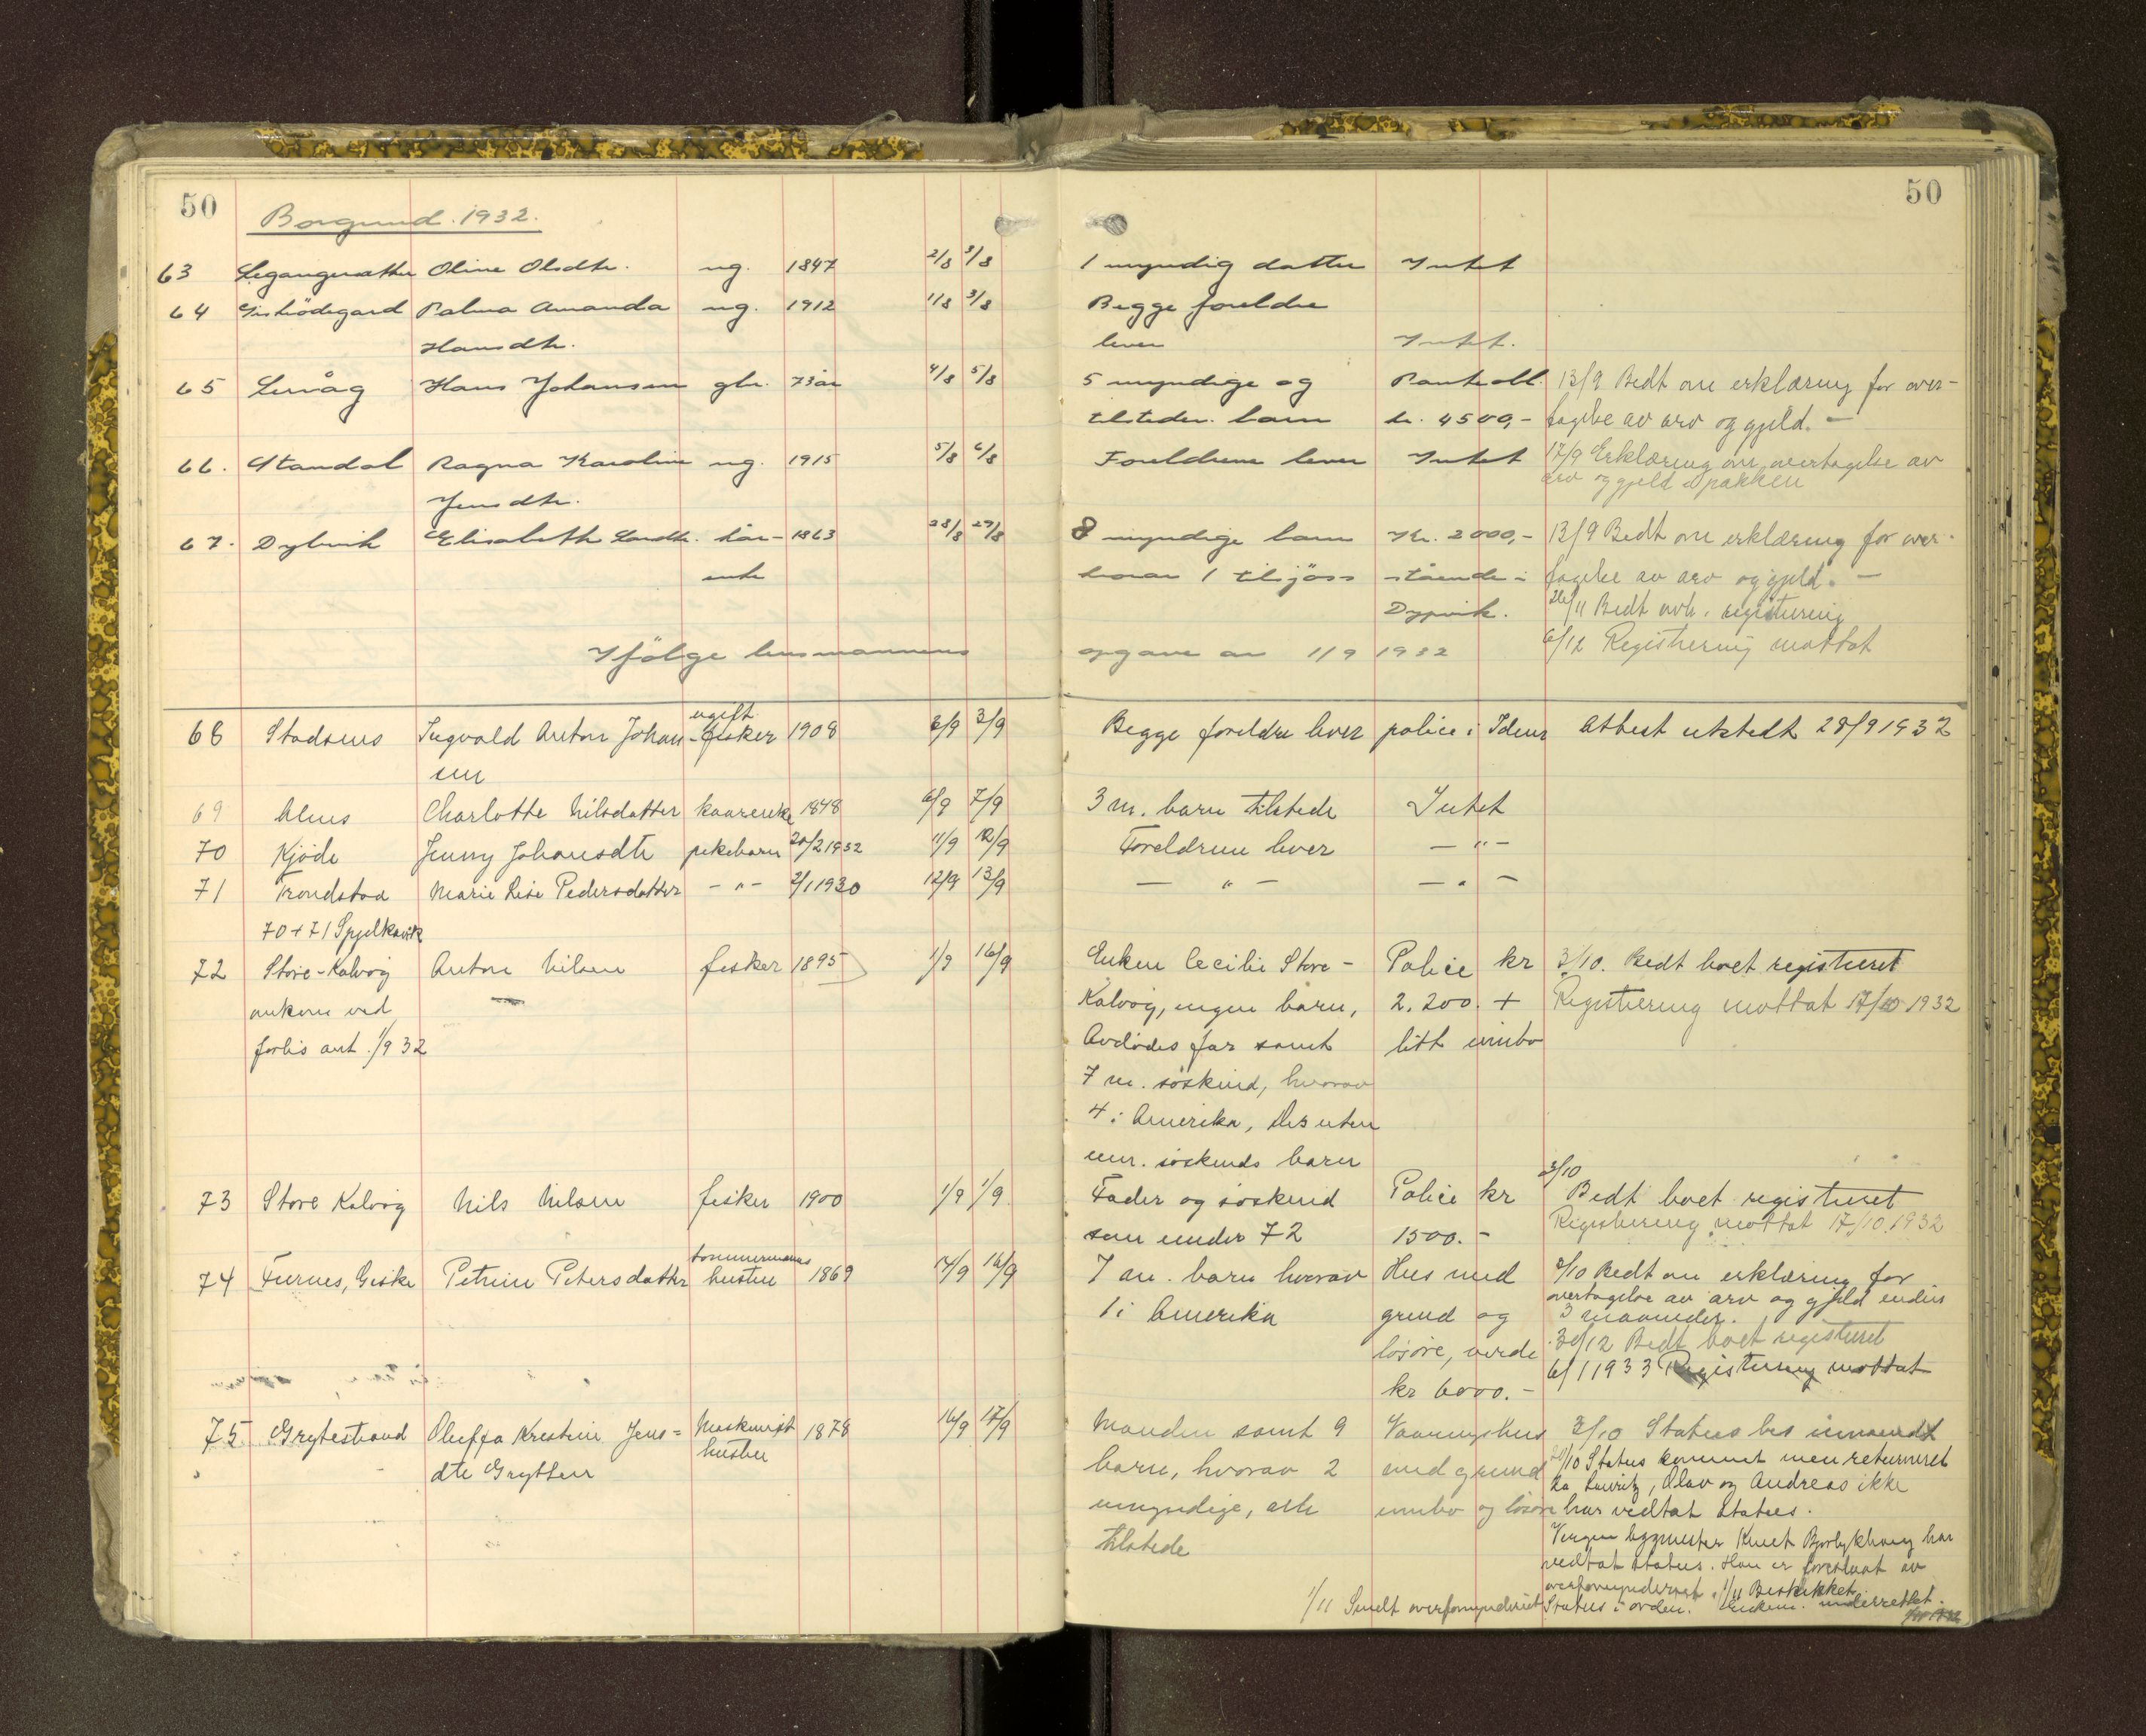 50
Borgund. 1932.
50
63 Oline Olsdtr. ug. 1847 2/8 3/8 1 myndig datter Intet
64 Palma Amanda ug. 1912 1/8 3/8 Begge foreldre
Hansdtr. lever Intet.
65 Levåg Hans Johansen gbr. 73 år 4/8 5/8 5 myndige og Panteobl. 13/9 Bedt om erklæring for over-
tilsteder. barn kr. 4500,- tagelse av arv og gjeld. —
66. Standal Ragna Karoline ug. 1915 5/8 6/8 Foreldrene lever Intet 17/9 Erklæring om overtagelse av
Jensdtr. arv og gjeld i pakken
67. Dybvik Elisabeth 1863 28/8 29/8 8 myndige barn Kr. 2000,- 13/9 Bedt om erklæring for over-
enke hvorav 1 tilsjøss stående i tagelse av arv og gjeld. —
Dypvik. 26/11 Bedt avh. registrering
Ifölge lensmannens opgave av 1/9 1932 6/12 Registrering mottat
ugift
68 Stadsnes Ingvald Anton Johan- fisker 1908 2/9 3/9 Begge foreldre lever police i Idun Attest utstedt 28/9 1932
sen
69 Alnes Charlotte Nilsdatter kaarenke 1848 6/9 7/9 3 m. barn tilstede Intet
70 Kjøde Jenny Johansdtr pikebarn 20/2 1932 11/9 12/9 Foreldrene lever — " —
71 Trondstad Marie Lise Pedersdatter — " — 2/1 1930 12/9 13/9 — " — — " —
70 + 71 Spjelkavik
72 Store-Kalvøy Anton Nilsen fisker 1895 1/9 16/9 Enken Cecilie Store- Police kr 3/10. Bedt boet registreret
omkom ved Kalvøy, ingen barn, 2.200. + Registrering mottat 17/10 1932
forlis ant. 1/9 32 Avdødes far samt litt innbo
7 m. søskend, hvorav
4 i Amerika, Des uten
um. søskends barn
73 Store Kalvøy Nils Nilsen fisker 1900 1/9 1/9. Fader og søskend Police kr 3/10 Bedt boet registreret
som under 72 1500.- Registrering mottat 17/10 1932
tømmermanns
74 Furnes, Giske Petrine Petersdatter hustru 1869 14/9 16/9 7 m. barn hvorav Hus med 3/10 Bedt om erklæring for
overtagelse av arv og gjeld inden
1 i Amerika grund og 3 maaneder.
løsøre, verdi 30/12 Bedt boet registreret
kr 6000.- 6/1 1933 Registrering mottat
75 Grytestrand Oluffa Kristine Jens= Maskinist 1878 16/9 17/9 Manden samt 9 Vaaningshus 3/10 Status bes innsendt
hustru
dtr Grytten barn, hvorav 2 med grund 20/10 Status kommet men returneret
da Lauritz, Olav og Andreas ikke
umyndige, alle innbo og løsøre har vedtat status.
tilstede Vergen byggmester Knut har
vedtat status. Han er foreslaat av
overformynderiet. 1/11 Beskikket.
1/11 Sendt overformynderiet Status i orden. Enkem. underrettet.